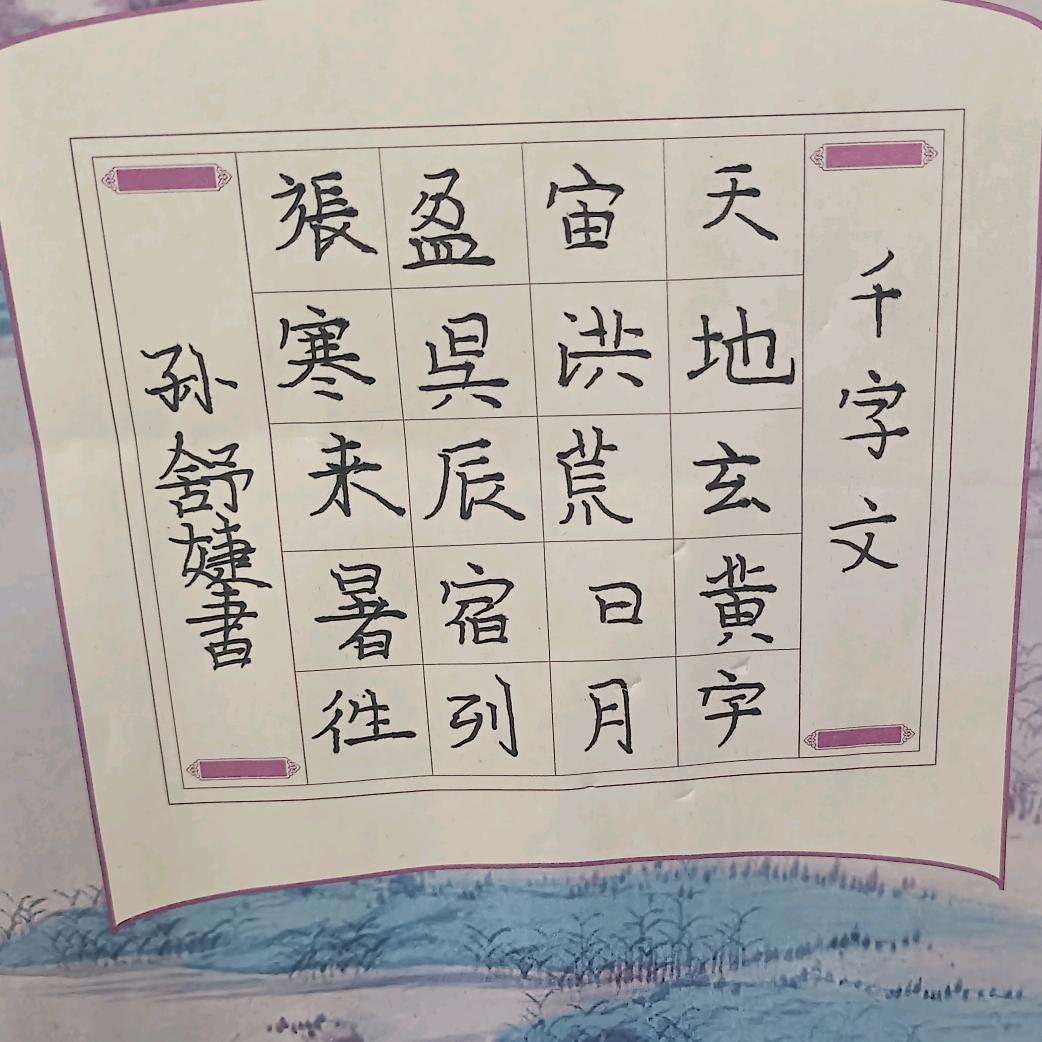 千字文
天地玄黄字
宙洪荒日月
盈昃辰宿列
張寒来暑徃
孙舒婕書